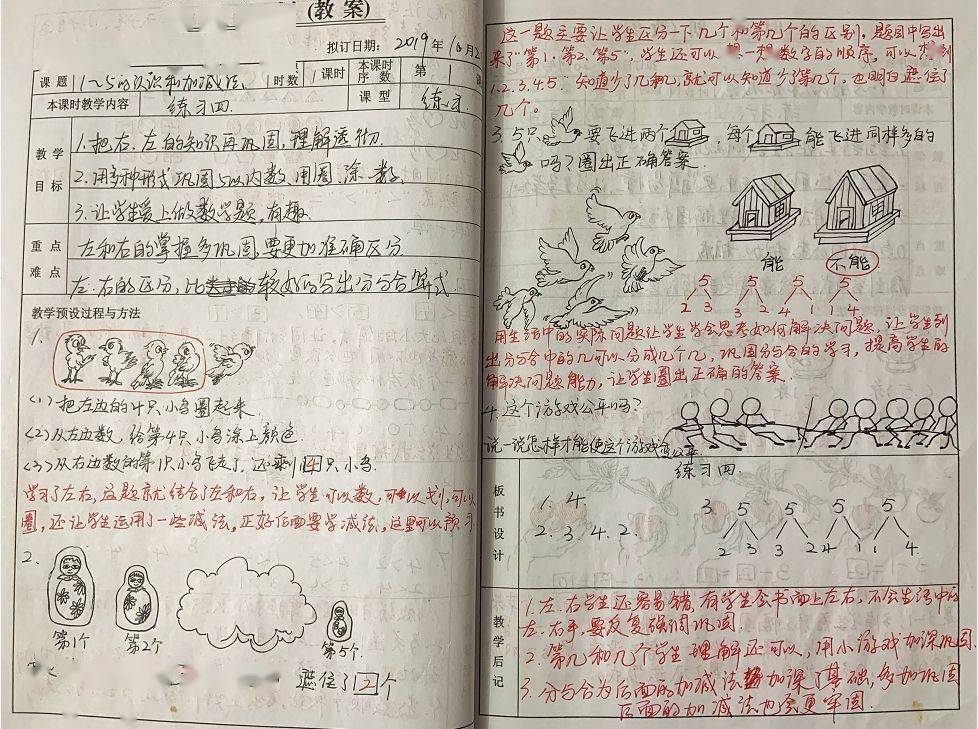 (教 案)
拟订日期： 2019年10月2
课 题 1~5的认识和加减法 时数 1课时 本课时序数 第 1
本课时教学内容 练习四. 课型 练习.
教学目标
1.把右、左的知识再巩固,理解透彻.
2.用多种形式巩固5以内数,用圈、涂、数.
3.让学生爱上做数学题,有趣.
重点 左和右的掌握多巩固,要更加准确区分
难点 左、右的区分,比较好的写出分与合算式.
教学预设过程与方法
1.
(1)把左边的4只小鸟圈起来.
(2)从左边数,给第4只小鸟涂上颜色
(3)从右边数的第1只小鸟飞走了,还剩4只小鸟.
学习了左右,这题就结合了左和右,让学生可以数,可以划,可以
圈,还让学生运用了一些减法,正好后面要学减法,这里可以预习
2.
第1个 第2个 第5个.
遮住了2个
这一题主要让学生区分一下几个和第几个的区别,题目中写出
来了"第1、第2、第5",学生还可以 数字的顺序,可以
1.2.3.4.5. 知道少了几和几,就可以知道少了第几个,也明白遮住了
几个。
3.5只 要飞进两个 ,每个 能飞进同样多的
吗?圈出正确答案.
能 不能
5 5 5 5
2 3 3 2 4 1 1 4
用生活中的实际问题让学生学会思考如何解决问题,让学生列
出分与合中的几可以分成几个几,巩固分与合的学习,提高学生的
解决问题能力,让学生圈出正确的答案.
4.这个游戏公平吗?
说一说怎样才能使这个游戏公平.
板书设计
练习四
1. 4. 3. 5 5 5 5
2. 3. 4. 2. 2 3 3 2 4 1 1 4.
教学后记
1.左、右学生还容易错,有学生会书面上左右,不会生活中的
左、右手,要反复强调巩固.
2.第几和几个学生理解还可以,用小游戏加深巩固.
3.分与合为后面的加减法 加深了基础,多加巩固
后面的加减法也会更牢固.